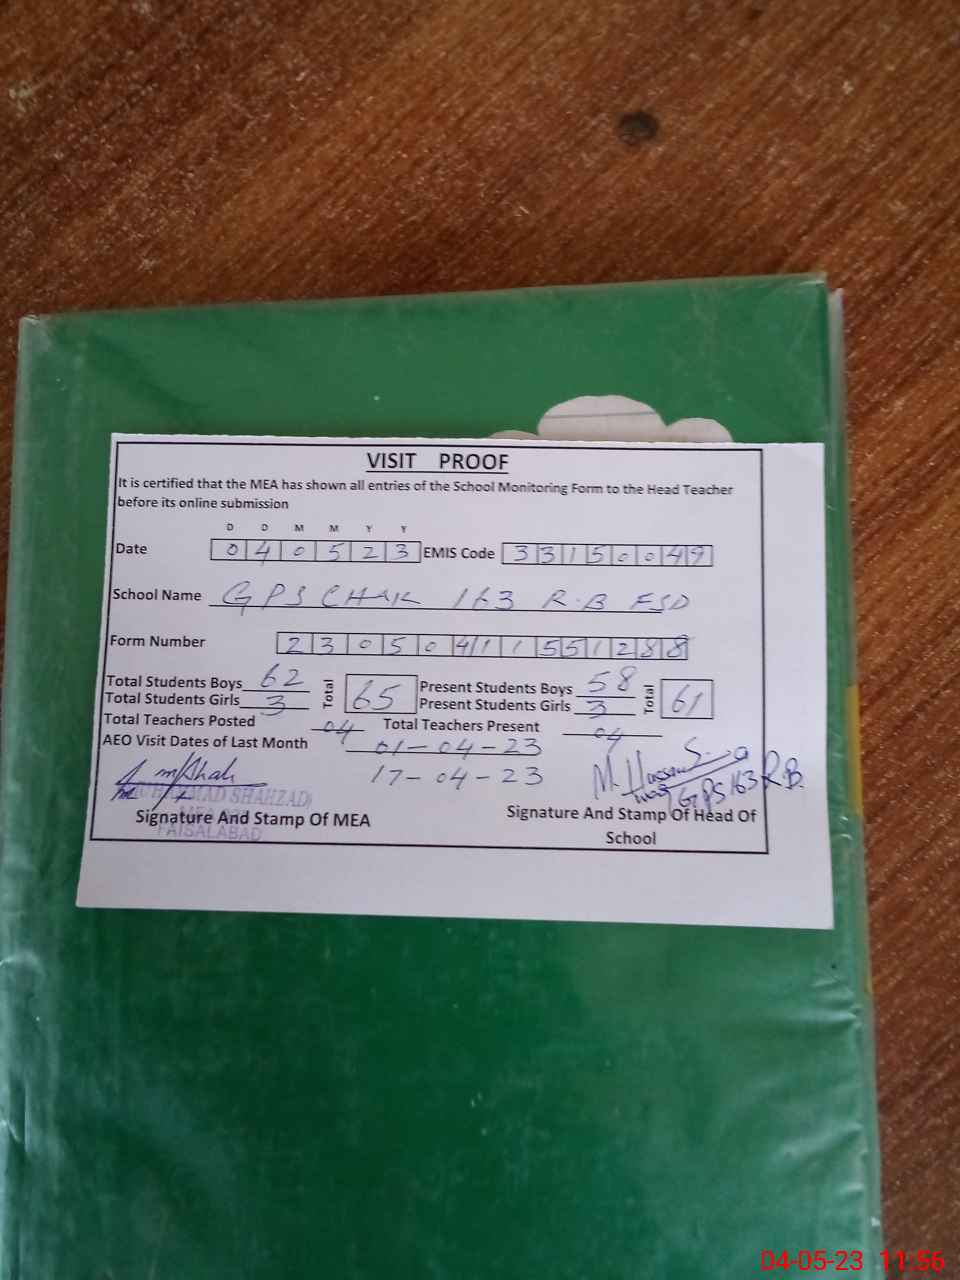 VISIT PROOF
It is certified that the MEA has shown all entries of the School Monitoring Form to the Head Teacher
before its online submission
D D M M Y Y
Date 0 4 0 5 2 3 EMIS Code 3 3 1 5 0 0 4 9
School Name GPS CHAK 163 R.B FSD
Form Number 2 3 0 5 0 4 1 1 5 5 1 2 8 8
Total Students Boys 62 Total 65 Present Students Boys 58 Total 61
Total Students Girls 3 Present Students Girls 3
Total Teachers Posted 04 Total Teachers Present 04
AEO Visit Dates of Last Month 01-04-23
17-04-23
M. Hassan
GPS 163 R.B.
MUHAMMAD SHAHZAD
FAISALABAD
Signature And Stamp Of MEA Signature And Stamp Of Head Of
School
04-05-23 11:56